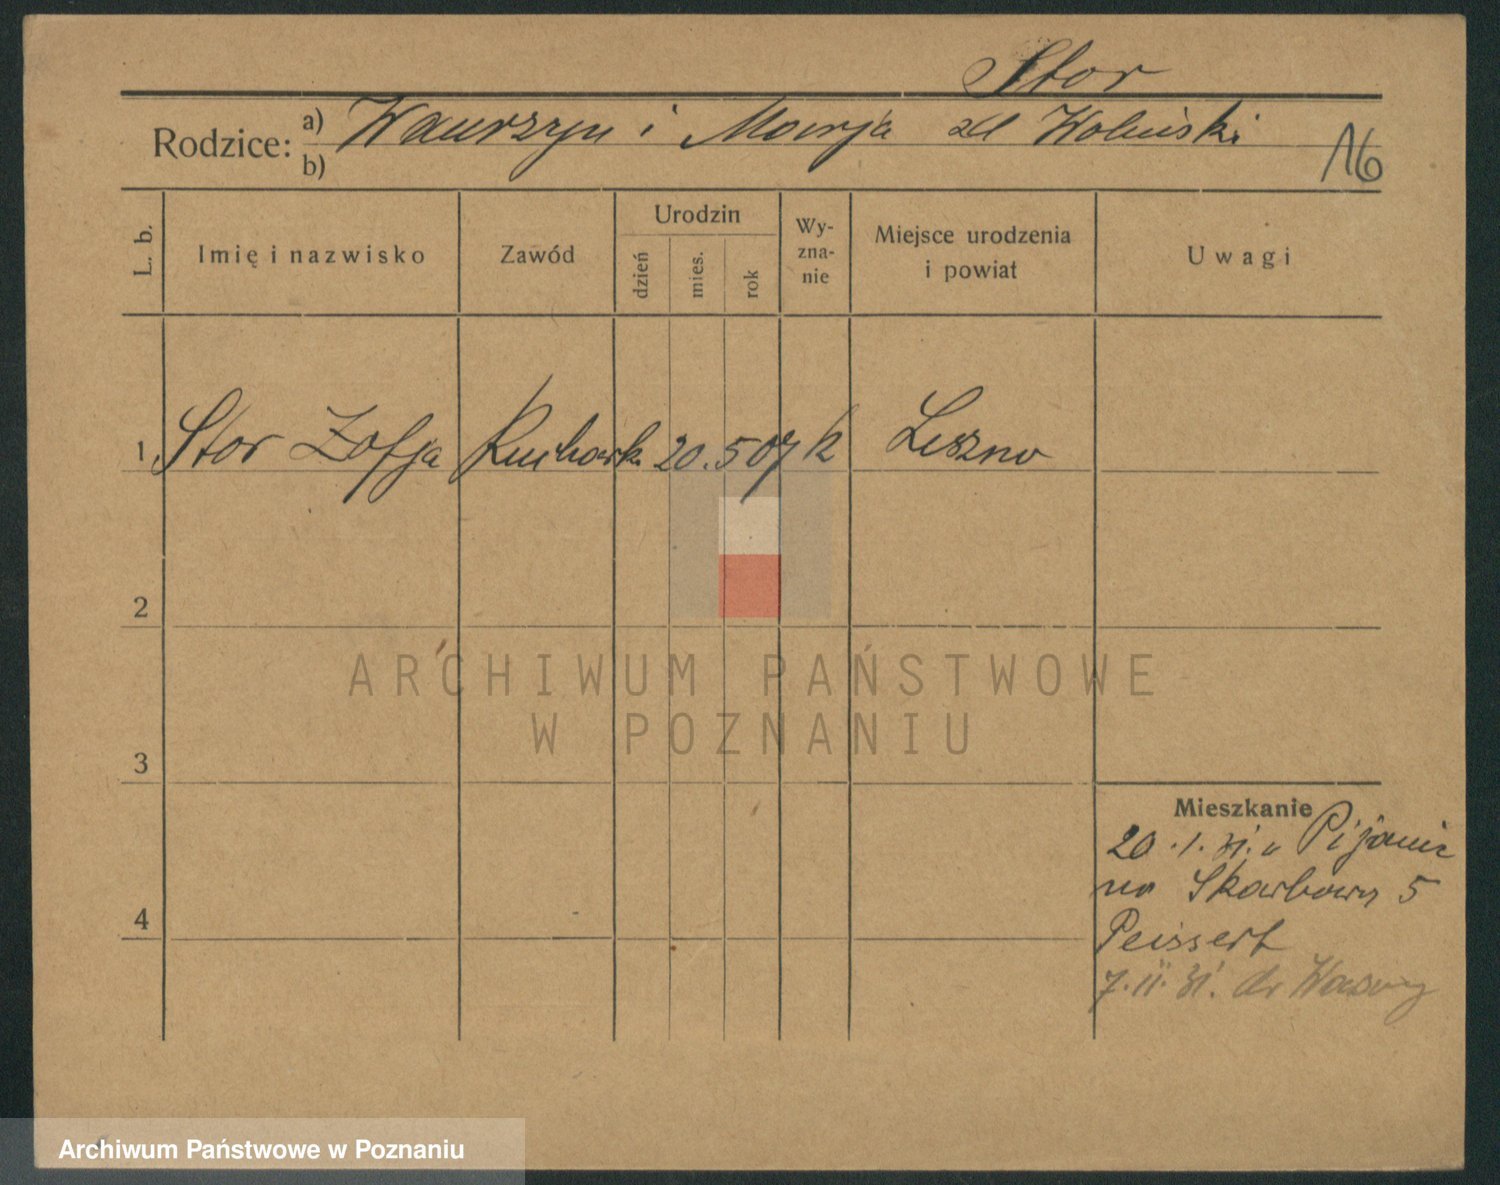 Stor
Rodzice: a) Wawrzyn i Marja zd Woliński
b)
16
L. b. Imię i nazwisko Zawód Urodzin dzień mies. rok Wy-zna-nie Miejsce urodzenia i powiat Uwagi
1 Stor Zofja Kuchark. 20. 5 07 k Leszno
2
ARCHIWUM PAŃSTWOWE
W POZNANIU
3
Mieszkanie
20.1.31. Pijanie
na Skarbowy 5
4
Peissert
7.II.31. do
Archiwum Państwowe w Poznaniu